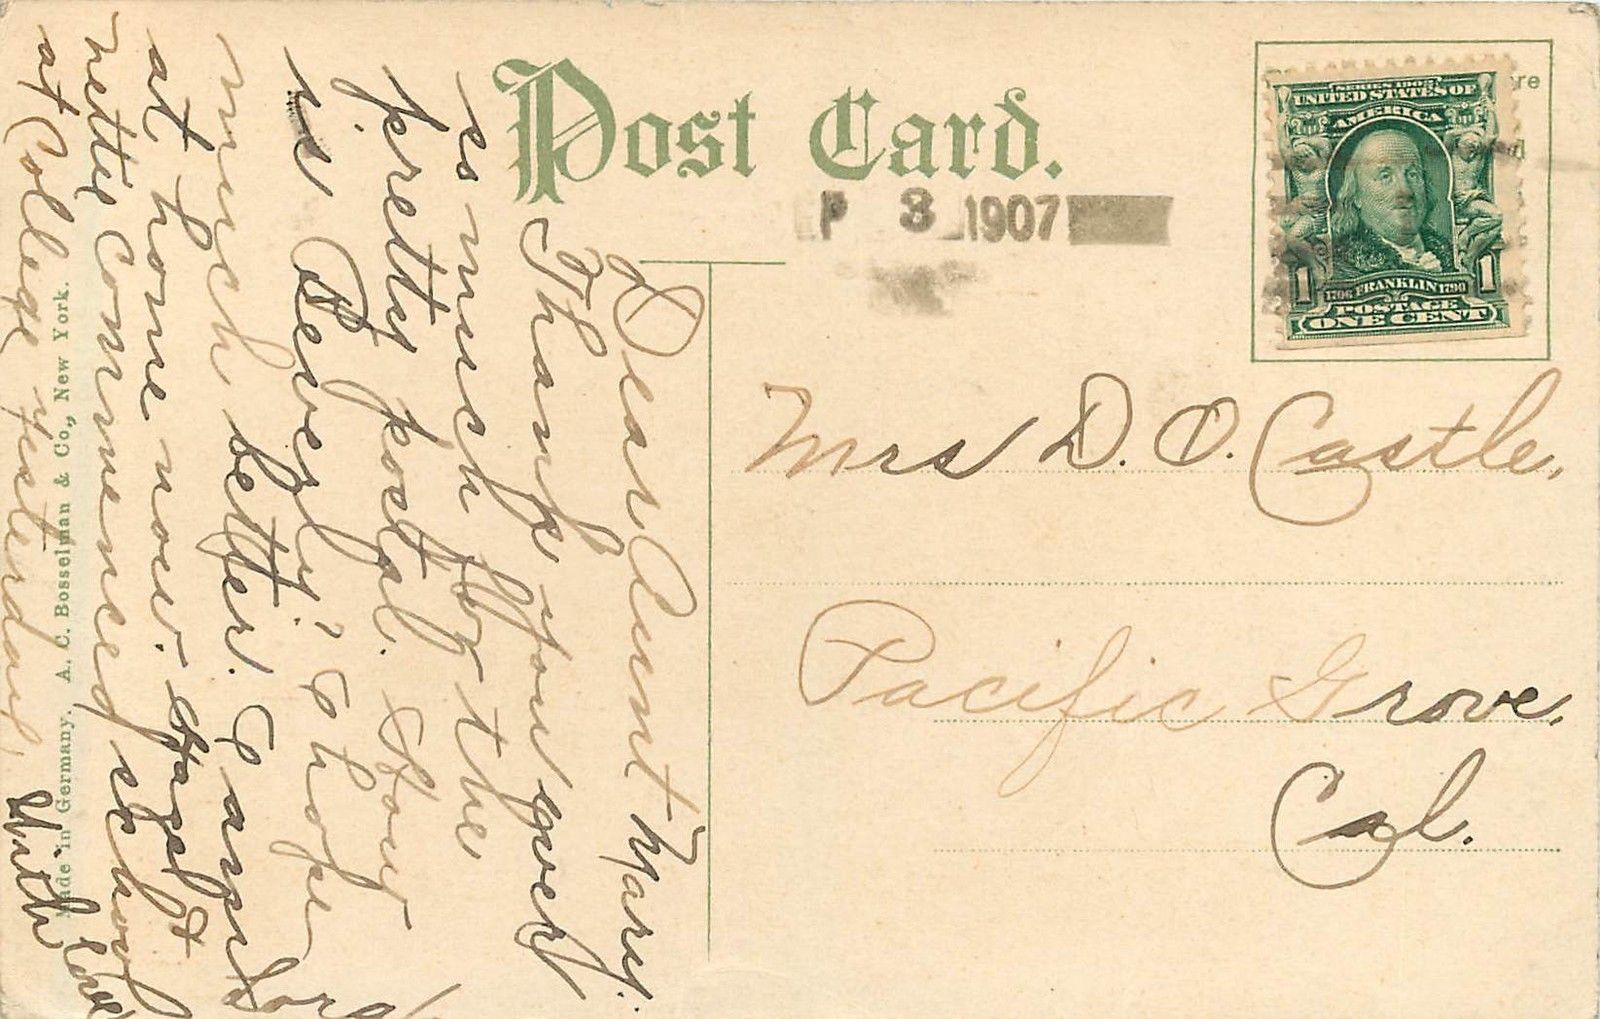 Post Card.
P 3 1907
SERIES 1902
UNITED STATES OF
AMERICA
1706 FRANKLIN 1790
1 1
POSTAGE
ONE CENT
Mrs D. O. Castle,
Pacific Grove,
Cal.
Dear Aunt Mary:
Thank you very
so much for the
pretty postal. How
is Beverly? I hope
much better. I am
at home now.
nettie commenced school
at College yesterday,
With love
Made in Germany. A. C. Bosselman & Co., New York.